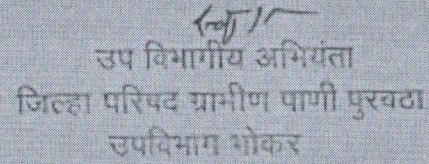 उप विभागीय अभियंता
जिल्हा परिषद ग्रामीण पाणी पुरवठा
उपविभाग भोकर